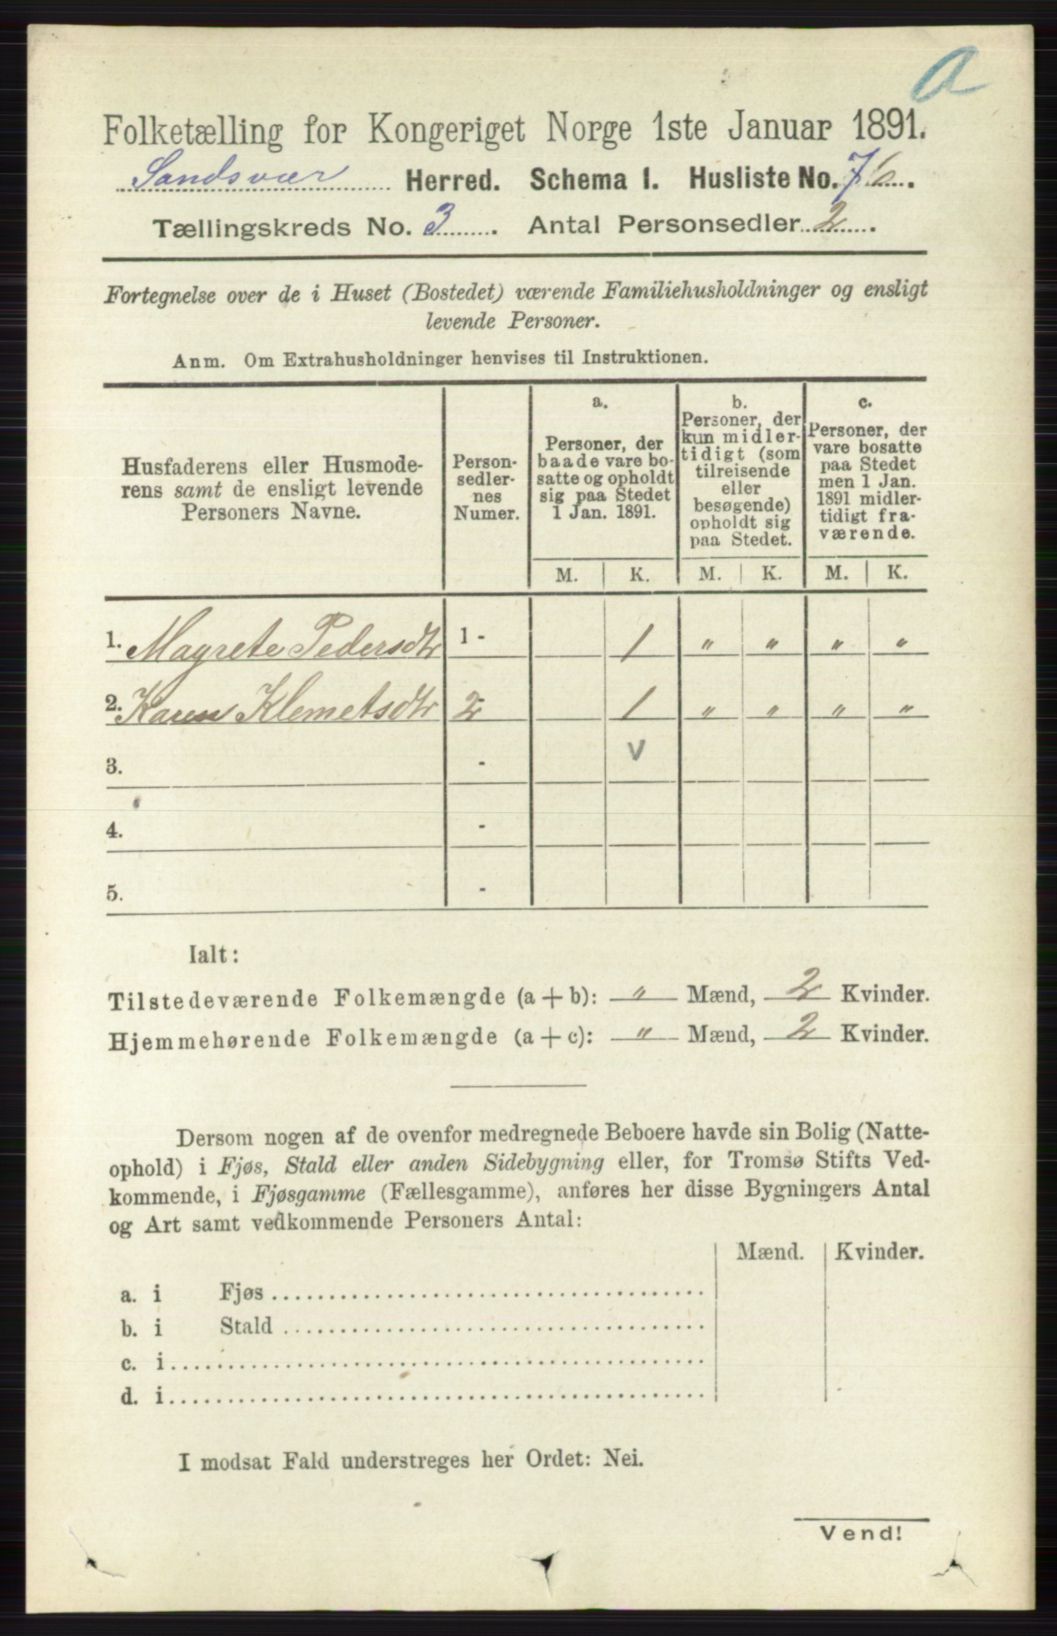 a
Folketælling for Kongeriget Norge 1ste Januar 1891.
Sandsvær Herred. Schema I. Husliste No. 76.
Tællingskreds No. 3. Antal Personsedler 2.
Fortegnelse over de i Huset (Bostedet) værende Familiehusholdninger og ensligt
levende Personer.
Anm. Om Extrahusholdninger henvises til Instruktionen.
Husfaderens eller Husmode-
rens samt de ensligt levende
Personers Navne.
Person-
sedler-
nes
Numer.
a.
Personer, der
baade vare bo-
satte og opholdt
sig paa Stedet
1 Jan. 1891.
b.
Personer, der
kun midler-
tidigt (som
tilreisende
eller
besøgende)
opholdt sig
paa Stedet.
c.
Personer, der
vare bosatte
paa Stedet
men 1 Jan.
1891 midler-
tidigt fra-
værende.
M. K. M. K. M. K.
1. Magrete Pedersdtr 1 - 1 " " " "
2. Karen Klemetsdtr 2 1 " " " "
3. - V
4. -
5. -
Ialt:
Tilstedeværende Folkemængde (a + b): " Mænd, 2 Kvinder.
Hjemmehørende Folkemængde (a + c): " Mænd, 2 Kvinder.
Dersom nogen af de ovenfor medregnede Beboere havde sin Bolig (Natte-
ophold) i Fjøs, Stald eller anden Sidebygning eller, for Tromsø Stifts Ved-
kommende, i Fjøsgamme (Fællesgamme), anføres her disse Bygningers Antal
og Art samt vedkommende Personers Antal:
Mænd. Kvinder.
a. i Fjøs
b. i Stald
c. i
d. i
I modsat Fald understreges her Ordet: Nei.
Vend!